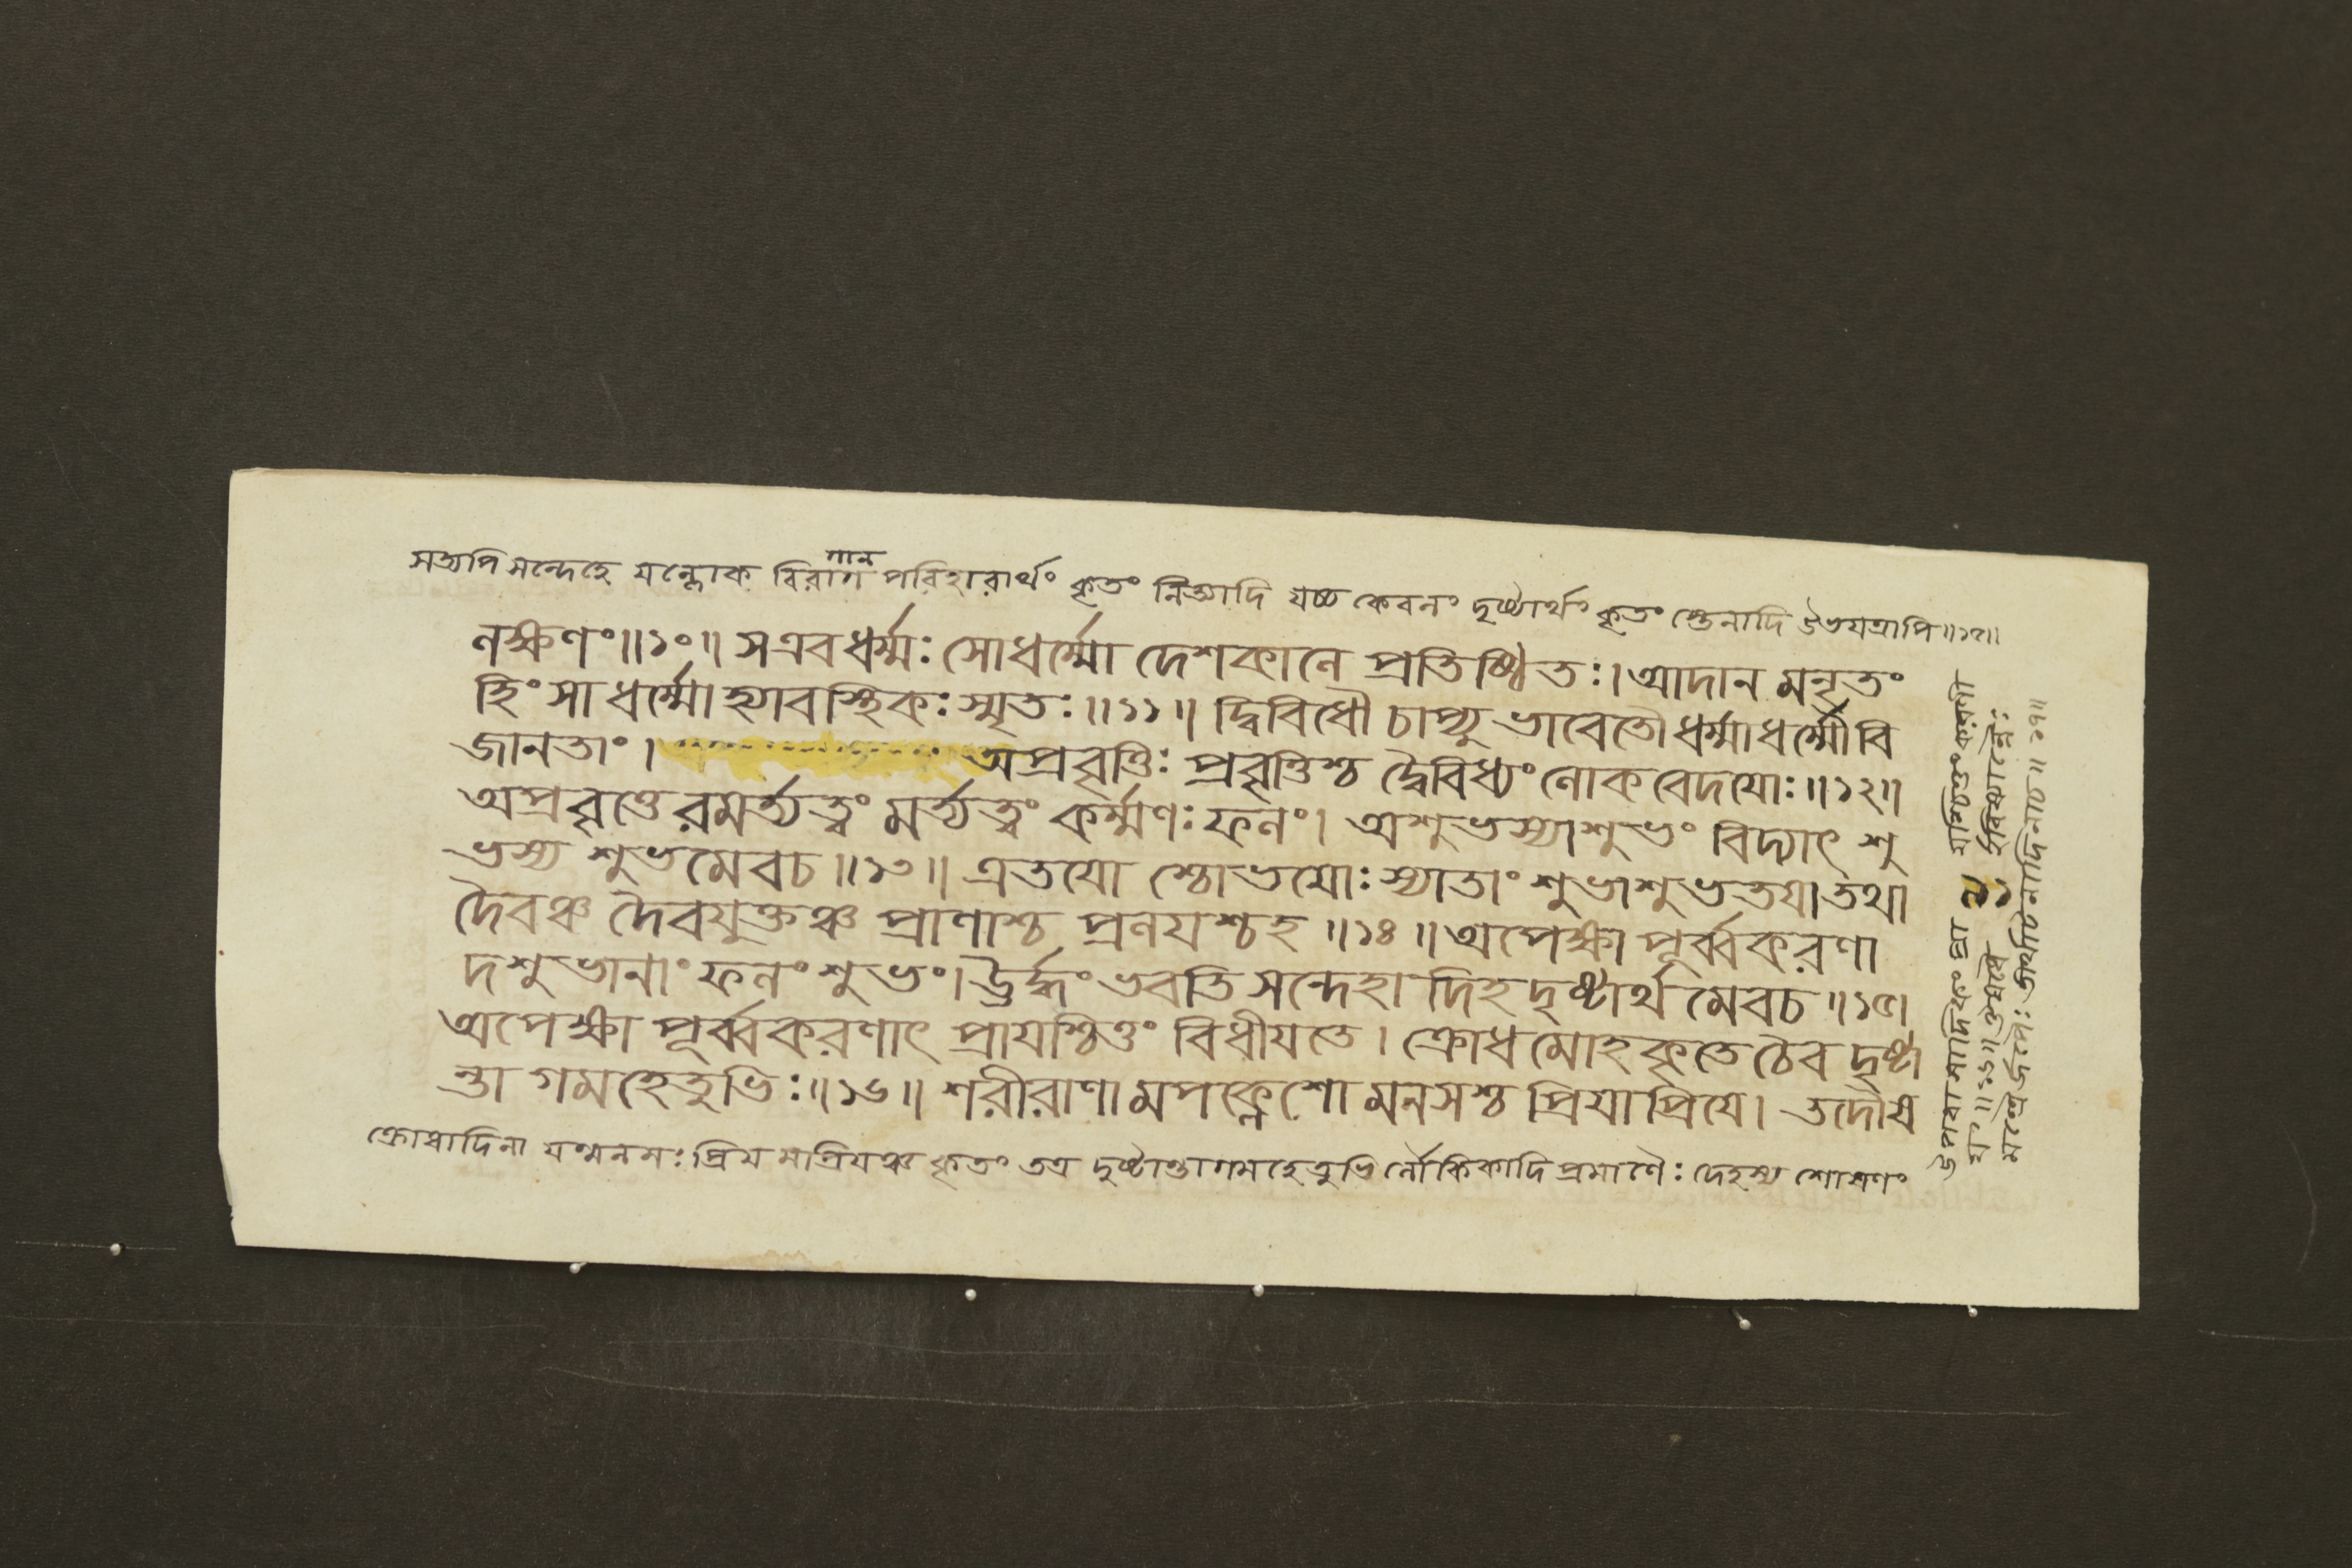 সত্যপি সন্দেহে যল্লোক বিরাগ পরিহারার্থং কৃতং নিত্যাদি যচ্চ কেবলং দৃষ্টার্থং কৃতং শ্যেনাদি উভয়ত্রাপি॥১৫॥
লক্ষণং॥১০॥ সএবধর্ম্মঃ সোধর্ম্মো দেশকালে প্রতিষ্ঠিতঃ। আদান মনৃতং
হিংসা ধর্ম্মো হ্যাবস্থিকঃ স্মৃতঃ॥১১॥ দ্বিবিধৌ চাপ্যুভাবেতৌ ধর্ম্মাধর্ম্মৌ বি
জানতাং। অপ্রবৃত্তিঃ প্রবৃত্তিশ্চ দ্বৈবিধ্যং লোকবেদযোঃ॥১২॥
অপ্রবৃত্তেরমর্ত্যত্বং মর্ত্যত্বং কর্ম্মণঃ ফলং। অশুভস্যাশুভং বিদ্যাৎ শু
ভস্য শুভমেবচ॥১৩॥ এতযো শ্চোভযোঃ স্যাতাং শুভাশুভতযা তথা
দৈবঞ্চ দৈবযুক্তঞ্চ প্রাণাশ্চ প্রলযশ্চহ॥১৪॥ অপেক্ষা পূর্ব্বকরণা
দশুভানাং ফলং শুভং। ঊর্দ্ধং ভবতি সন্দেহা দিহ দৃষ্টার্থ মেবচ॥১৫।
অপেক্ষা পূর্ব্বকরণাৎ প্রাযশ্চিত্তং বিধীযতে। ক্রোধমোহকৃতে চৈব দৃষ্টা
ন্তা গমহেতুভিঃ॥১৬॥ শরীরাণা মপক্লেশো মনসশ্চ প্রিযাপ্রিযে। তদৌষ
ক্রোধাদিনা যন্মনসঃ প্রিয মপ্রিযঞ্চ কৃতং তত্র দৃষ্টান্তাগমহেতুভি র্লৌকিকাদি প্রমাণৈঃ দেহস্য শোষণং
উপবাসাদিকং প্রা যশ্চিত্তং
যং॥১৬॥ ঔষধৈ র্হবিষ্যান্নৈঃ
মন্ত্রৈর্জপৈঃ তীর্থাটনাদিনাচ॥১৭॥